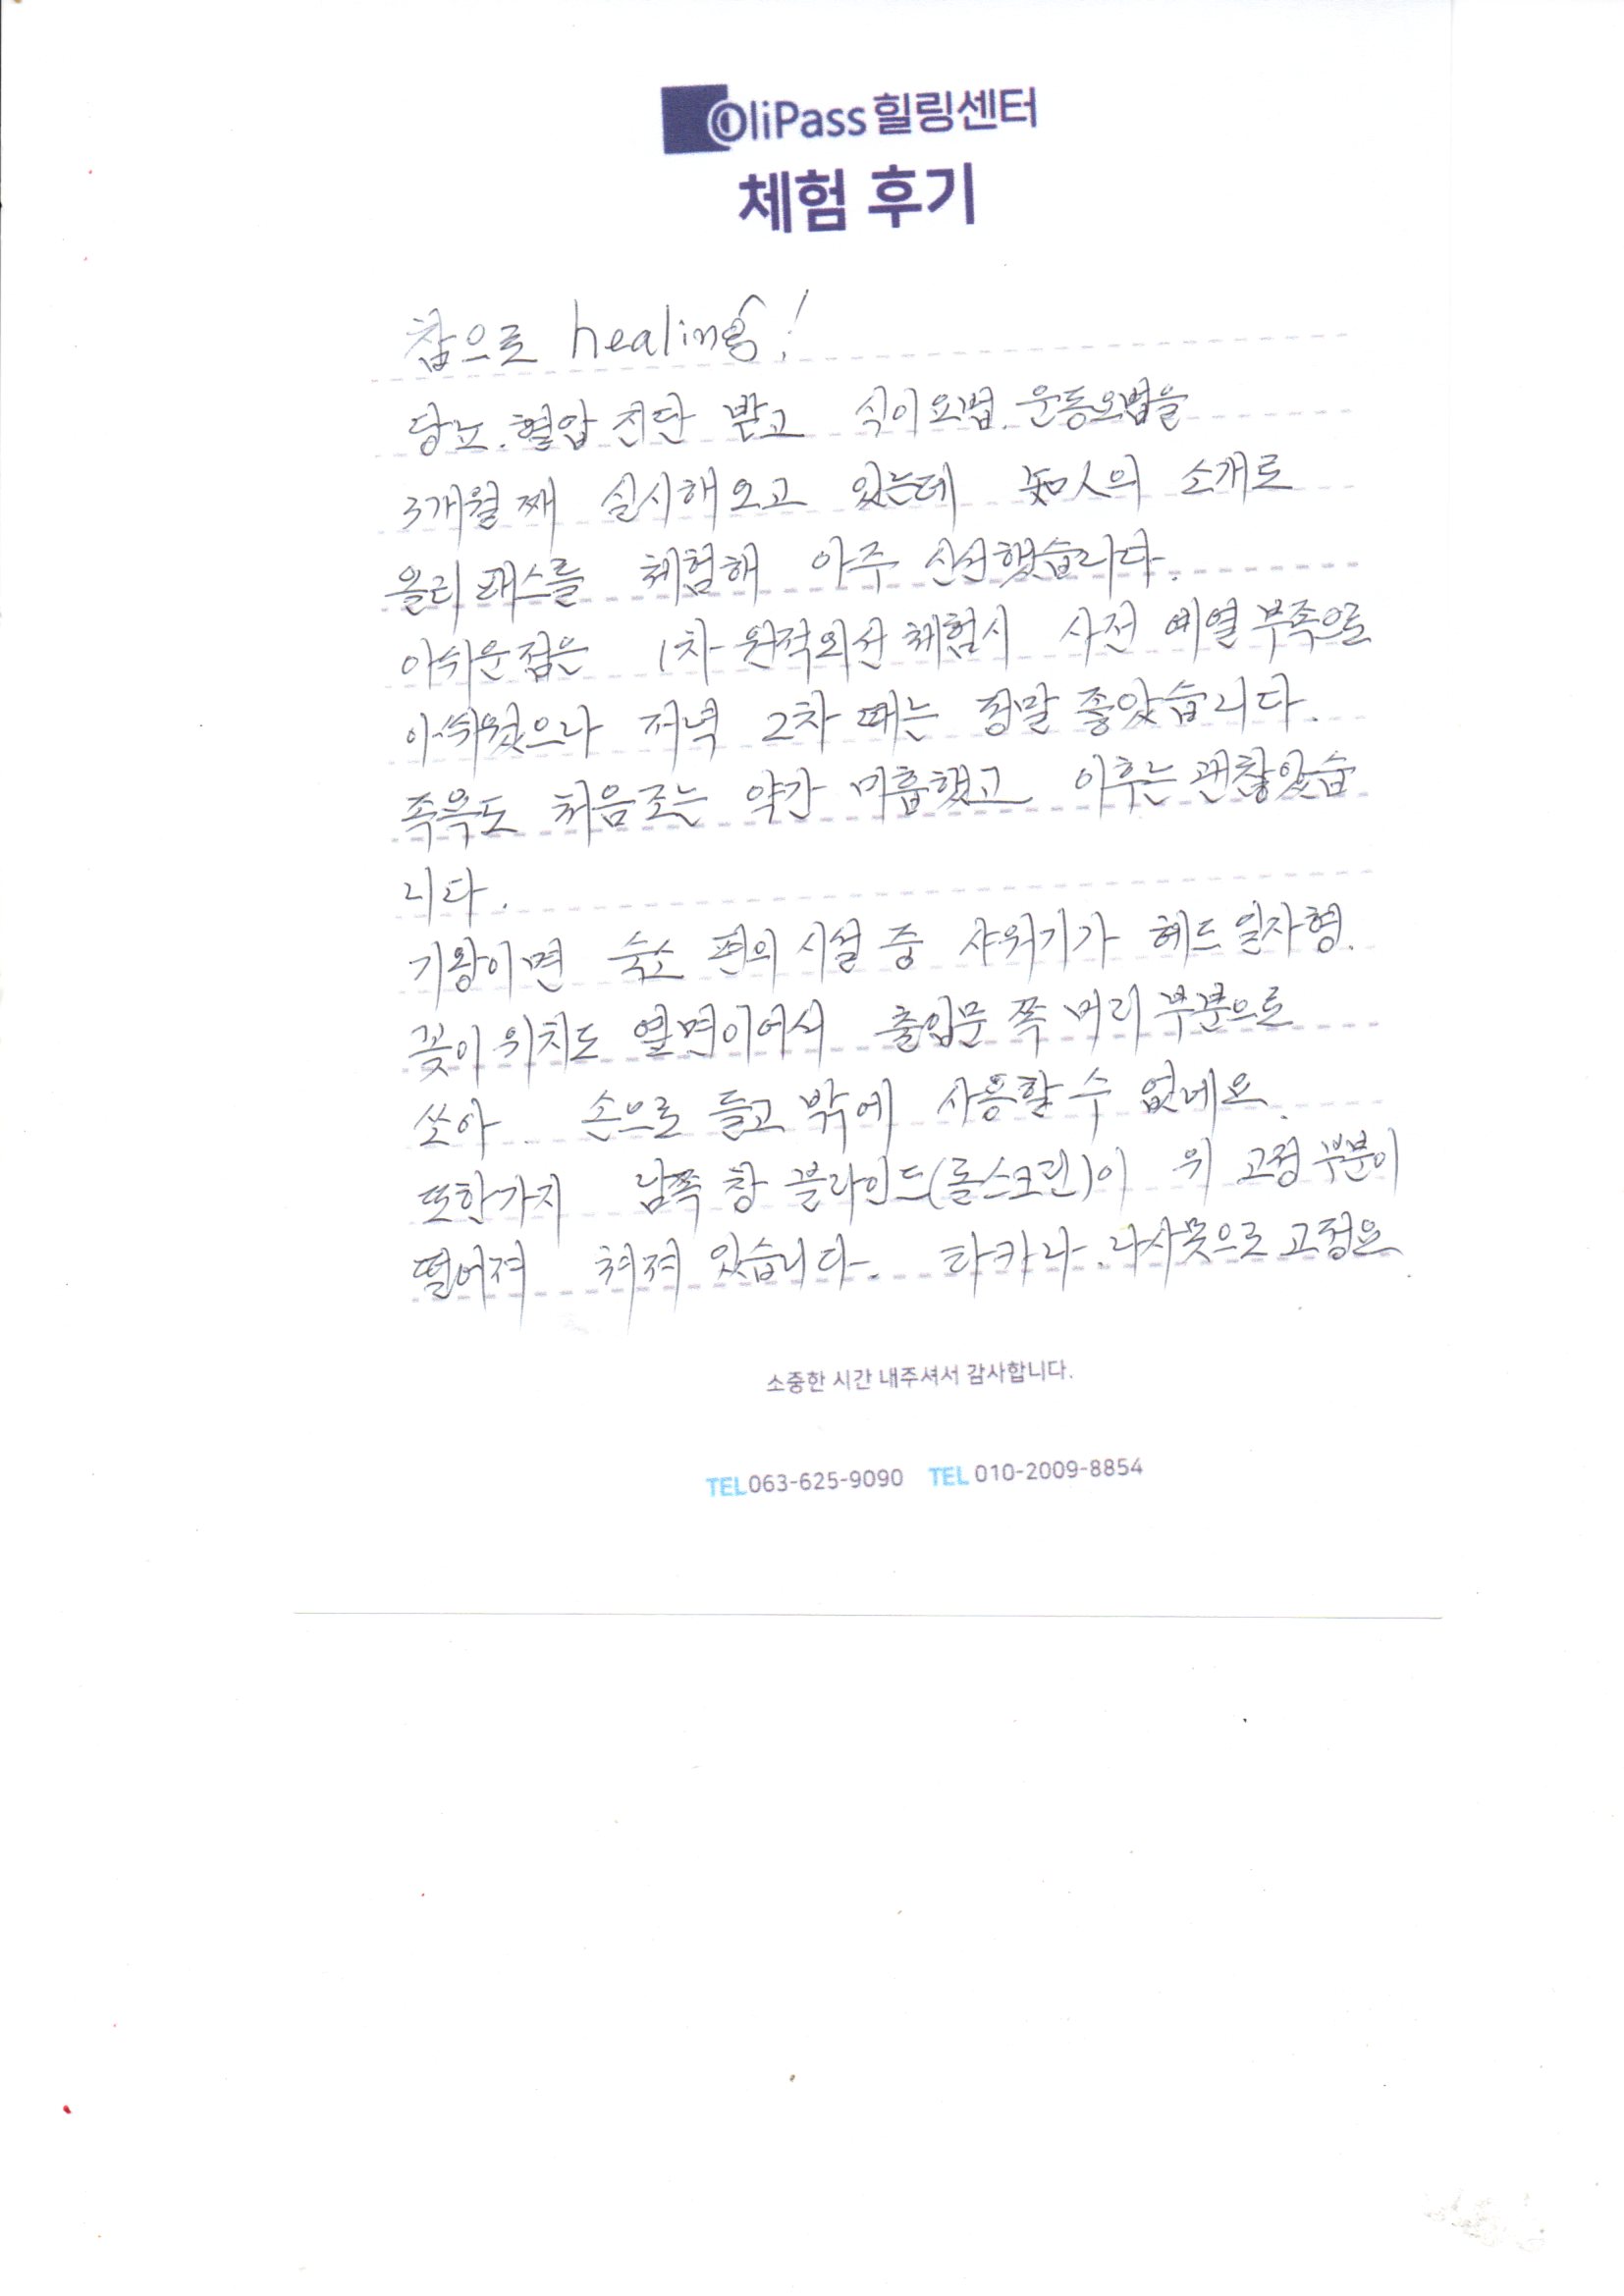 OliPass 힐링센터
체험 후기
참으로 healing!
당뇨.혈압 진단 받고 식이요법.운동요법을
3개월 째 실시해오고 있는데 知人의 소개로
올리패스를 체험해 아주 신선했습니다.
아쉬운점은 1차 원적외선 체험시 사전 예열 부족으로
아쉬웠으나 저녁 2차 때는 정말 좋았습니다.
족욕도 처음조는 약간 미흡했고 이후는 괜찮았습
니다.
기왕이면 숙소 편의 시설 중 샤워기가 헤드 일자형.
꽂이 위치도 옆면이어서 출입문 쪽 머리 부분으로
쏘아 손으로 들고 밖에 사용할 수 없네요.
또한가지 남쪽 창 블라인드(롤스크린)이 위 고정 부분이
떨어져 쳐져 있습니다. 타카나.나사못으로 고정은
소중한 시간 내주셔서 감사합니다.
TEL 063-625-9090 TEL 010-2009-8854